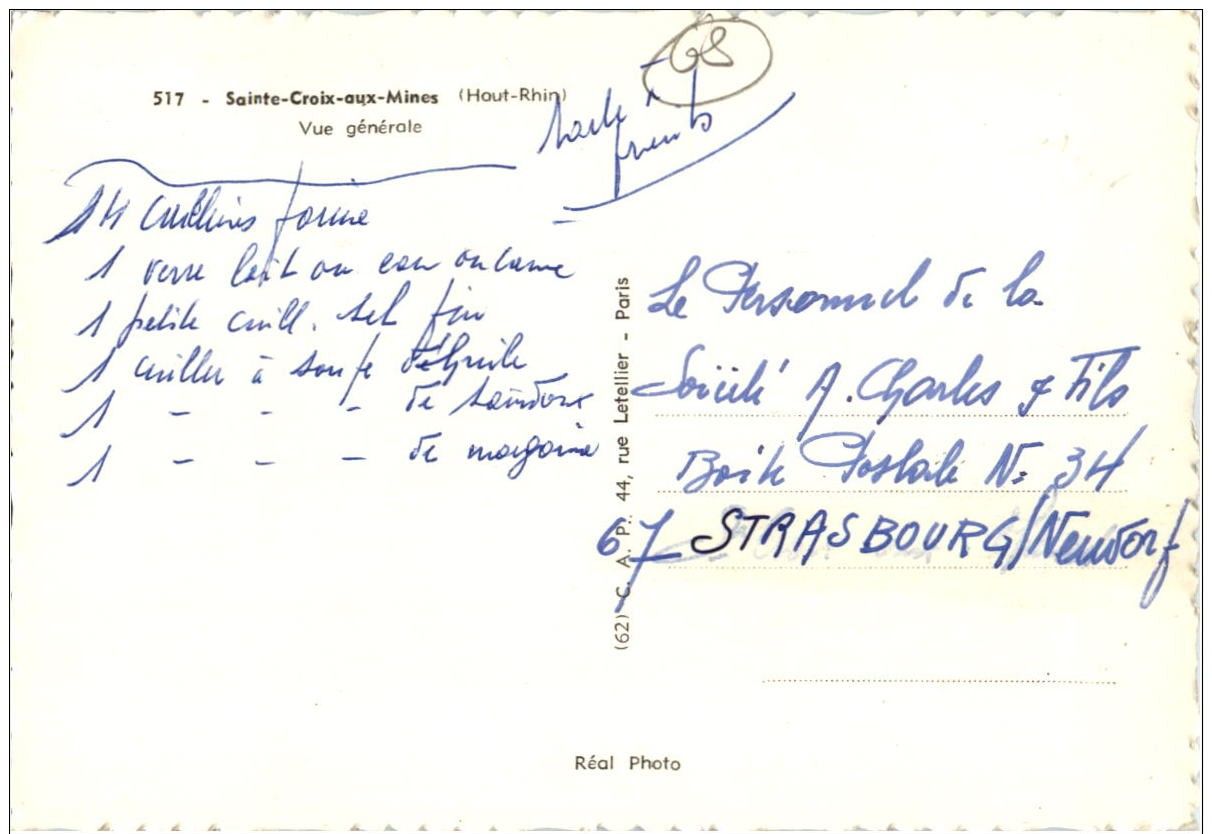 68
517 - Sainte-Croix-aux-Mines (Haut-Rhin)
Vue générale
fruits
14 cuillières farine
1 verre lait ou eau ou
1 petite cuill. sel fin
1 cuiller à soupe d'huile
1 - - - de saindoux
1 - - - de margarine
Le Personnel de la
Société A. Charles & Fils
Boite Postale N: 34
67 STRASBOURG/Neudorf
(62) C. A. P. 44, rue Letellier - Paris
Réal Photo